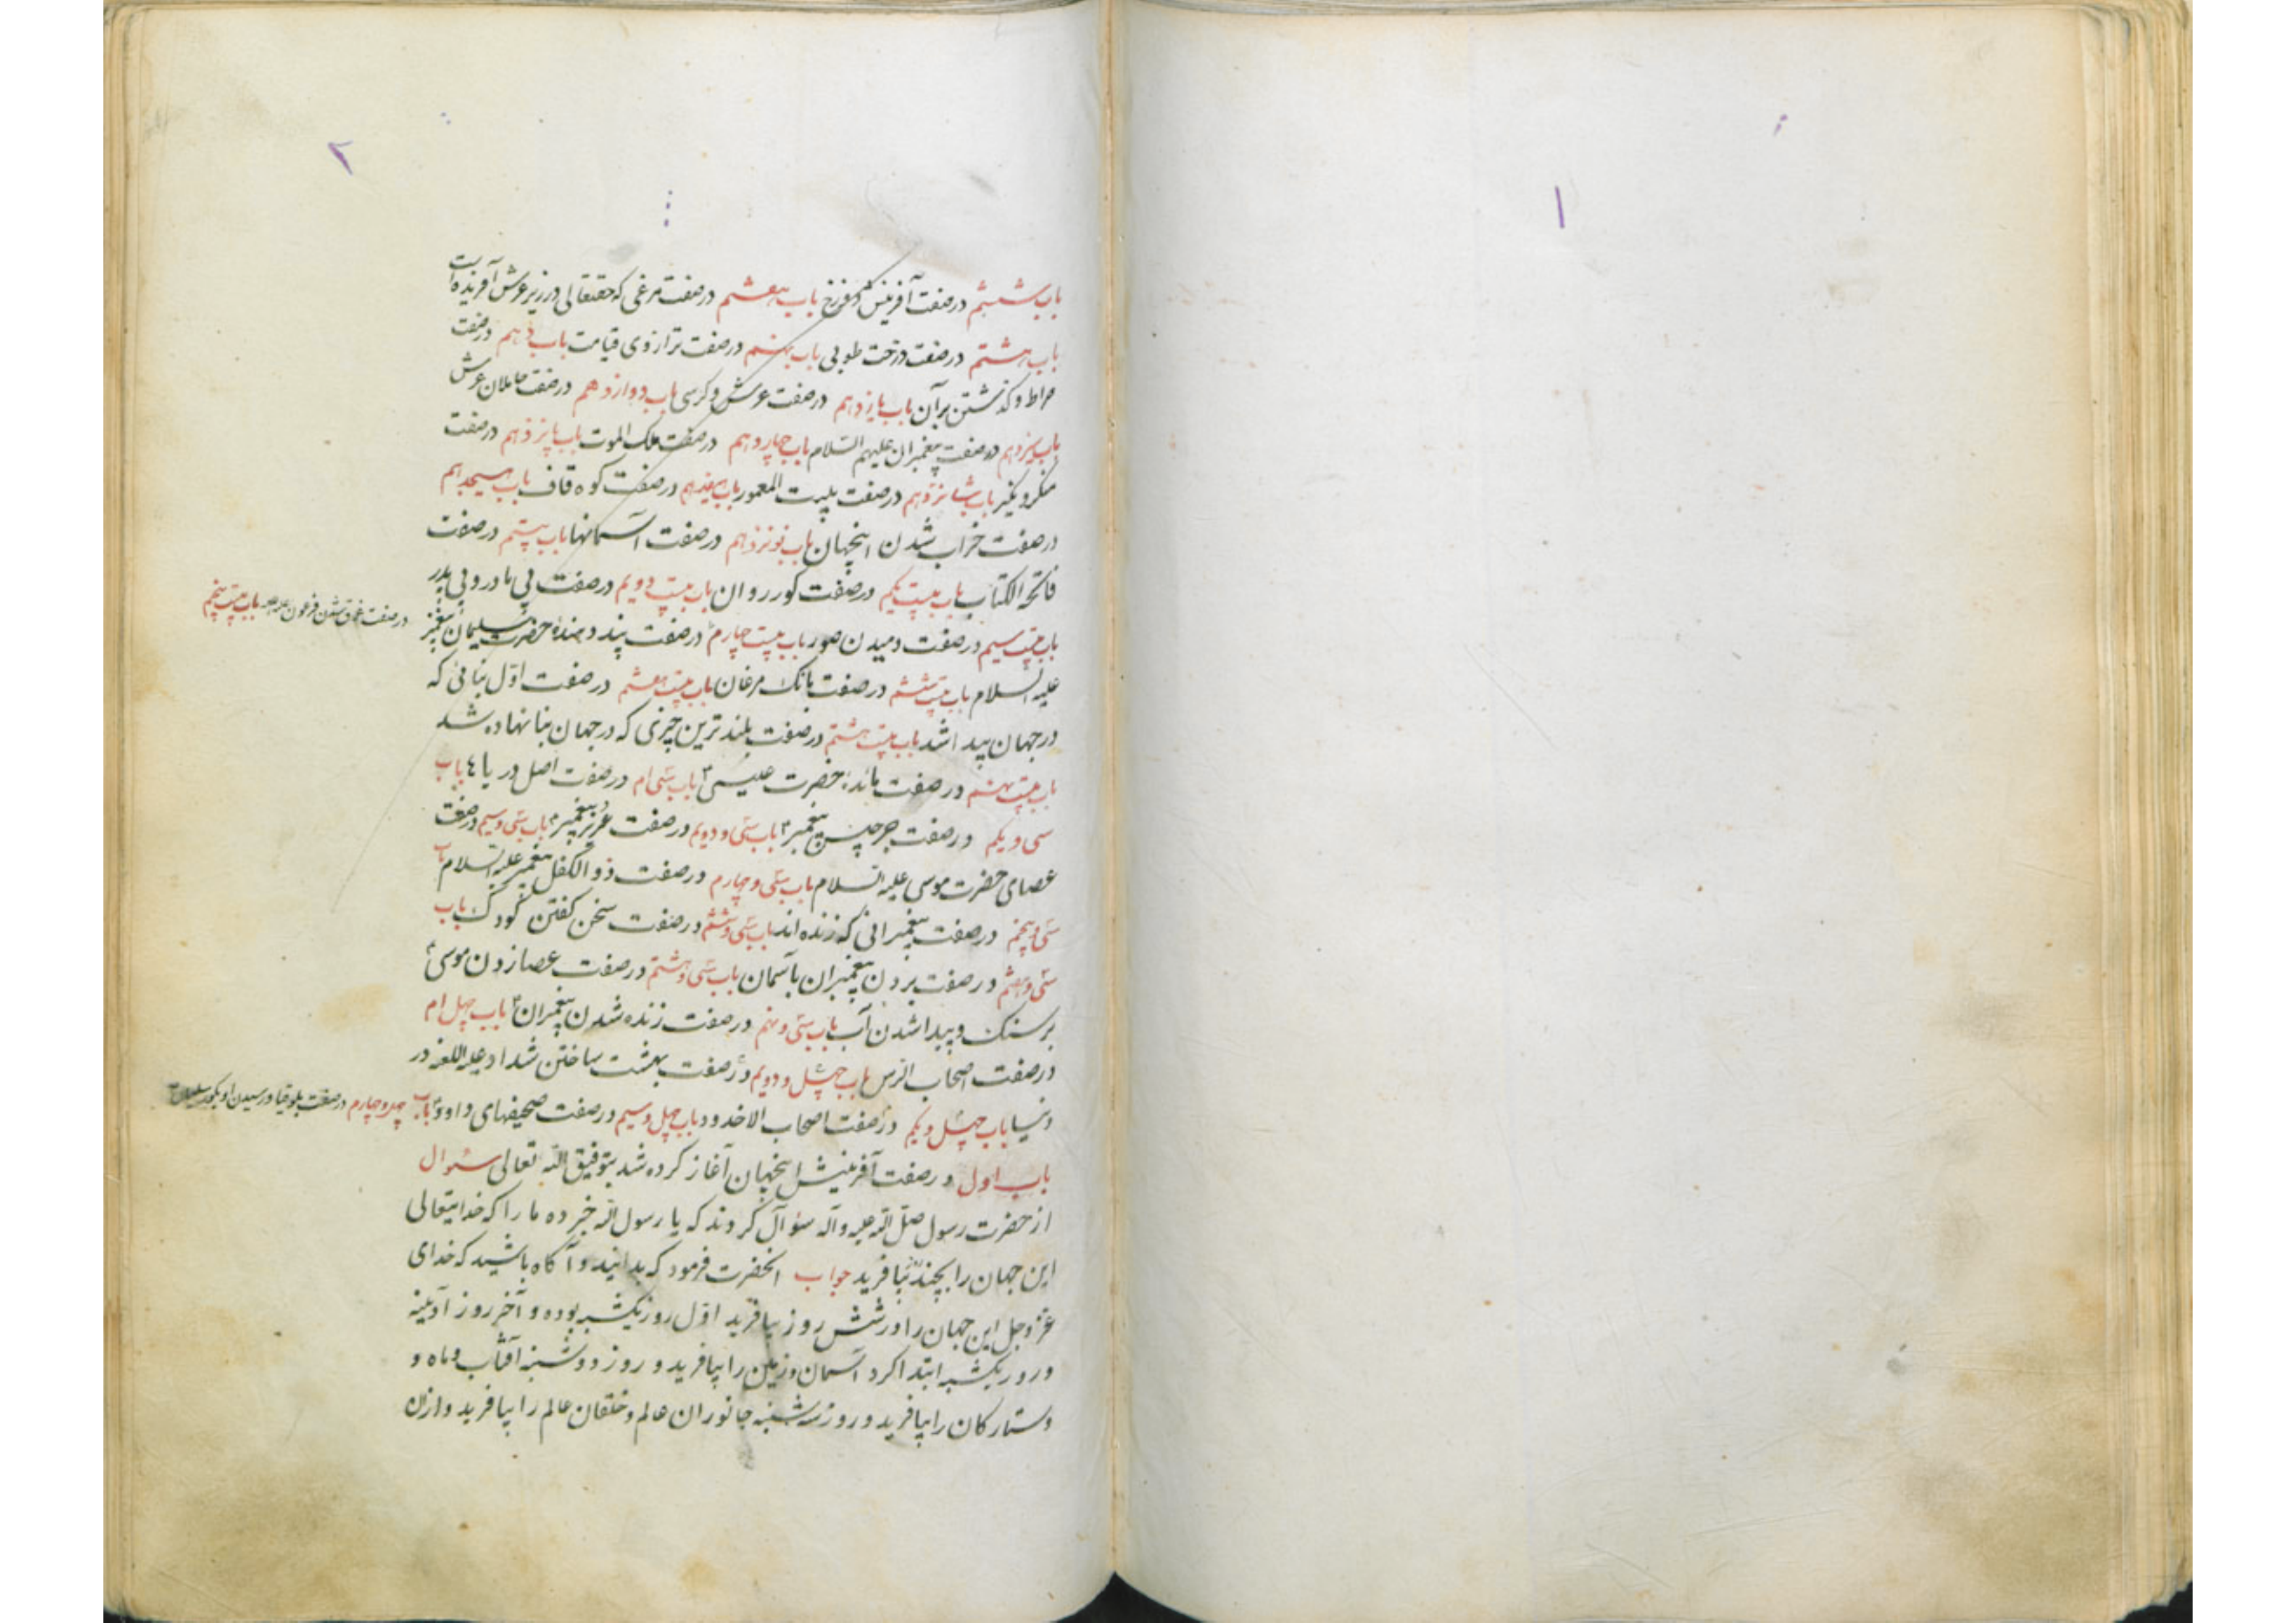 ۱
۲
باب ششم در صفت آفرینش دوزخ باب هفتم در صفت مرغی که حقتعالی در زیر عرش آفریده است
باب هشتم در صفت درخت طوبی باب نهم در صفت ترازوی قیامت باب دهم در صفت
صراط و کذشتن بر آن باب یازدهم در صفت عرش و کرسی باب دوازدهم در صفت حاملان عرش
باب سیزدهم در صفت پیغمبران علیهم السلام باب چهاردهم در صفت ملک الموت باب پانزدهم در صفت
منکر و نکیر باب شانزدهم در صفت بیت المعمور باب هفدهم در صفت کوه قاف باب هیجدهم
در صفت خراب شدن اینجهان باب نونزدهم در صفت آسمانها باب بیستم در صفت
فاتحة الکتاب باب بیست یکم در صفت کور روان باب بیست دویم در صفت بی مادر و بی پدر
باب بیست سیم در صفت دمیدن صور باب بیست چهارم در صفت پند دهندهٔ حضرت سلیمان پیغمبر
در صفت غرق شدن فرعون باب بیست پنجم
علیه السلام باب بیست ششم در صفت بانک مرغان باب بیست هفتم در صفت اوّل بنائی که
در جهان پیدا شد باب بیست هشتم در صفت بلندترین چیزی که در جهان بنا نهاده شد
باب بیست نهم در صفت مائدهٔ حضرت عیسی ۴ باب سی ام در صفت اصل دریاها باب
سی و یکم در صفت جرجیس پیغمبر ۴ باب سی و دویم در صفت عزیر پیغمبر ۴ باب سی و سیم در صفت
عصای حضرت موسی علیه السلام باب سی و چهارم در صفت ذو الکفل پیغمبر علیه السلام باب
سی و پنجم در صفت پیغمبرانی که زنده اند باب سی و ششم در صفت سخن کفتن کودک باب
سی و هفتم در صفت بردن پیغمبران بآسمان باب سی و هشتم در صفت عصا زدن موسی ۴
بر سنک و پیدا شدن آب باب سی و نهم در صفت زنده شدن پیغمبران ۴ باب چهل ام
در صفت اصحاب الرس باب چهل و دویم در صفت بهشت ساختن شداد علیه اللعنه در
دنیا باب چهل و یکم در صفت اصحاب الاخدود باب چهل و سیم در صفت صحیفهای داود ۴ باب چهل و چهارم در صفت بلوقیا و رسیدن او بکور سلیمان ۴
باب اول در صفت آفرینش اینجهان آغاز کرده شد بتوفیق الله تعالی سئوال
از حضرت رسول صلّی الله علیه و آله سؤال کردند که یا رسول الله خبر ده ما را که خدایتعالی
این جهان را بچند روز بیافرید جواب آنحضرت فرمود که بدانید و آکاه باشید که خدای
عزّ و جل این جهان را در شش روز بیافرید اوّل روز یکشنبه بوده و آخر روز آدینه
و روز یکشنبه ابتدا کرد آسمان و زمین را بیافرید و روز دوشنبه آفتاب و ماه و
و ستارکان را بیافرید و روز سه شنبه جانوران عالم و خلقان عالم را بیافرید و از آن